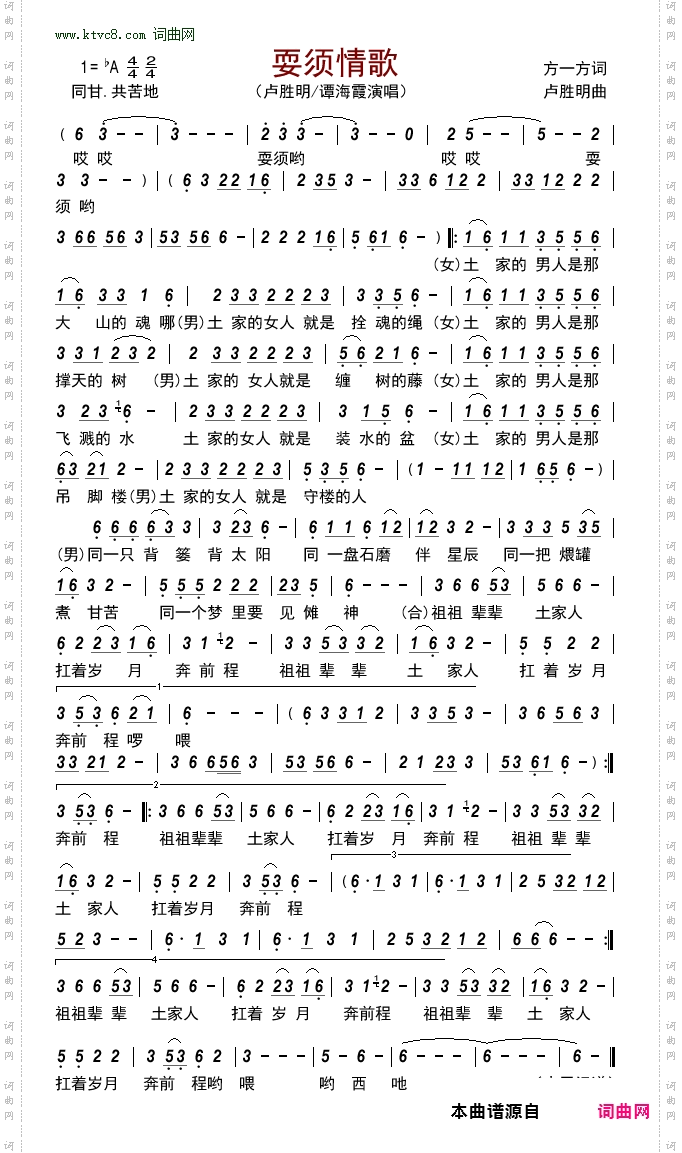 www.ktvc8.com 词曲网
耍须情歌
1=♭A 4/4 2/4
方一方词
同甘.共苦地
（卢胜明/谭海霞演唱）
卢胜明曲
( 6 3 - - | 3 - - - | 2 3 3 - | 3 - - 0 | 2 5 - - | 5 - - 2 |
哎 哎 耍须哟 哎 哎 耍
3 3 - - ) | ( 6 3 22 16 | 2 35 3 - | 33 6 12 2 | 33 12 2 2 |
须 哟
3 66 56 3 | 53 56 6 - | 2 2 2 16 | 5 61 6 - ) ‖: 16 11 35 56 |
(女)土 家的 男人是那
16 33 1 6 | 2 33 22 23 | 33 56 - | 16 11 35 56 |
大 山的 魂 哪(男)土 家的女人 就是 拴 魂的绳(女)土 家的 男人是那
33 1 23 2 | 2 33 22 23 | 56 21 6 | 16 11 35 56 |
撑天的 树 (男)土 家的 女人就是 缠 树的藤(女)土 家的 男人是那
3 23 6 - | 2 33 22 23 | 3 15 6 - | 16 11 35 56 |
飞 溅的 水 土 家的女人 就是 装 水的 盆 (女)土 家的 男人是那
63 21 2 - | 2 33 22 23 | 5 35 6 - | (1 - 11 12 | 1 65 6 -) |
吊 脚 楼(男)土 家的女人 就是 守楼的人
6 6 6 6 3 3 | 3 23 6 - | 6 11 6 12 | 12 3 2 - | 3 3 3 5 35 |
(男)同一只 背 篓 背 太 阳 同 一盘石磨 伴 星辰 同一把 煨罐
16 3 2 - | 5 5 5 2 22 | 2 23 5 | 6 - - - | 3 6 6 53 | 5 6 6 - |
煮 甘苦 同一个梦 里要 见 傩 神 (合)祖祖 辈辈 土家人
6 2 23 16 | 3 1 2 - | 3 3 53 32 | 16 3 2 - | 5 5 2 2 |
扛着岁 月 奔 前 程 祖祖 辈 辈 土 家人 扛 着 岁 月
1
3 53 6 21 | 6 - - - | (6 33 12 | 33 53 - | 36 56 3 |
奔前 程 啰 喂
33 21 2 - | 3 6 656 3 | 53 56 6 - | 2 1 23 3 | 53 61 6 - ) :‖
2
3 53 6 - ‖: 3 6 6 53 | 5 6 6 - | 6 2 23 16 | 3 1 2 - | 3 3 53 32 |
奔前 程 祖祖辈辈 土家人 扛着岁 月 奔前 程 祖祖 辈 辈
3
16 3 2 - | 5 5 2 2 | 3 53 6 - | (6· 1 3 1 | 6· 1 3 1 | 2 5 32 12 |
土 家人 扛着岁月 奔前 程
5 2 3 - - | 6· 1 3 1 | 6· 1 3 1 | 2 5 32 12 | 6 6 6 -) :‖
4
3 6 6 53 | 5 6 6 - | 6 2 23 16 | 3 1 2 - | 3 6 6 53 32 | 16 3 2 - |
祖祖辈 辈 土家人 扛着 岁 月 奔前程 祖祖辈 辈 土 家人
5 5 2 2 | 3 53 6 2 | 3 - - - | 5 - 5 - | 6 - - - | 6 - - - | 6 - ‖
扛着岁月 奔前 程哟 喂 哟 西 吔
本曲谱源自
词曲网